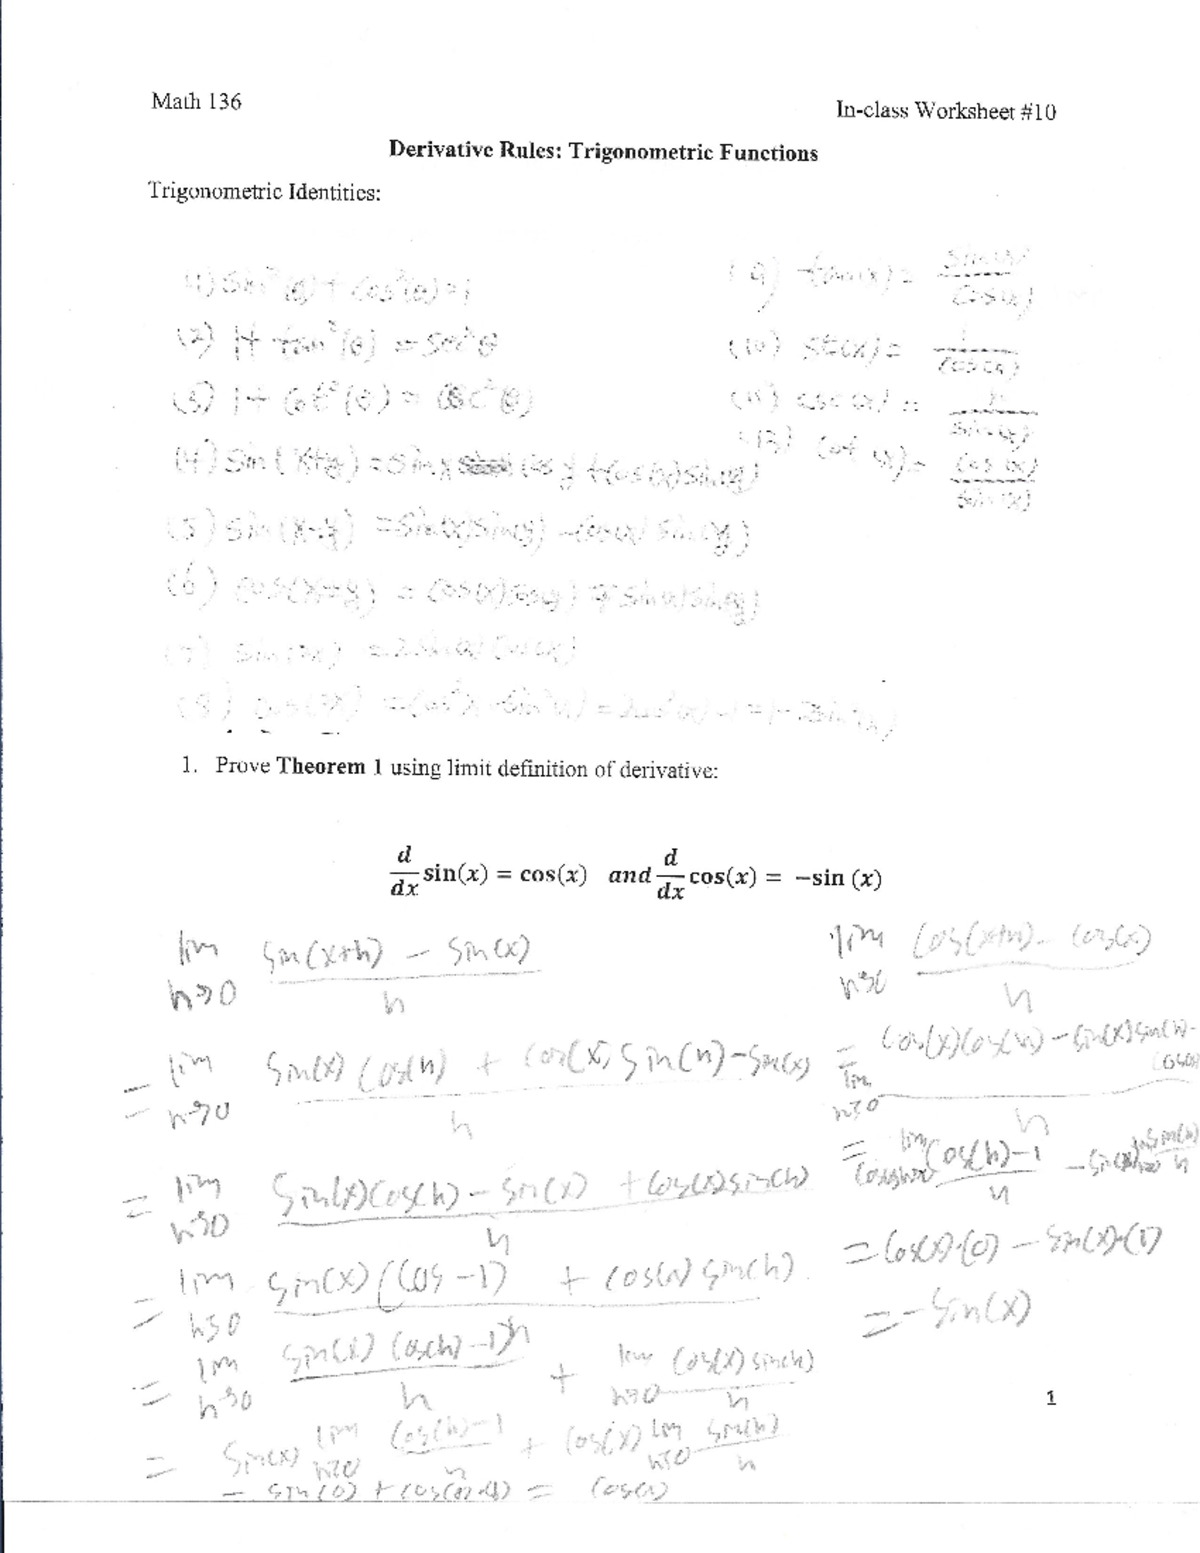 Math 136
In-class Worksheet #10
Derivative Rules: Trigonometric Functions
Trigonometric Identities:
(1) sin²(θ) + cos²(θ) = 1
(2) 1 + tan²(θ) = sec²θ
(3) 1 + cot²(θ) = csc²(θ)
(4) sin(x+y) = sin x cos y + cos(x)sin(y)
(5) sin(x-y) = sin(x)sin(y) - cos(x) sin(y)
(6) cos(x+y) = cos(x)cos(y) sin(x)sin(y)
(7) sin(2x) = 2sin(x)cos(x)
(8) cos(2x) = cos²x - sin²(x) = 2cos²(x) - 1 = 1 - 2sin²(x)
(9) tan(x) = sin(x) / cos(x)
(10) sec(x) = 1 / cos(x)
(11) csc(x) = / sin(x)
(12) cot(x) = cos(x) / sin(x)
1. Prove Theorem 1 using limit definition of derivative:
d/dx sin(x) = cos(x) and d/dx cos(x) = -sin (x)
lim h→0 sin(x+h) - sin(x) / h
= lim h→0 sin(x) cos(h) + cos(x) sin(h) - sin(x) / h
= lim h→0 sin(x)cos(h) - sin(x) + cos(x)sin(h) / h
= lim h→0 sin(x)(cos -1) + cos(x) sin(h) / h
= lim h→0 sin(x) (cos(h) -1) / h + lim h→0 cos(x) sin(h) / h
= sin(x) lim h→0 cos(h) -1 / h + cos(x) lim h→0 sin(h) / h
= cos(x)
lim h→0 cos(x+h) - cos(x) / h
= lim h→0 cos(x)cos(h) - sin(x)sin(h) - cos(x) / h
= cos(x) lim h→0 cos(h) -1 / h - sin(x) lim h→0 sin(h) / h
= cos(x)·(0) - sin(x)·(1)
= -sin(x)
1